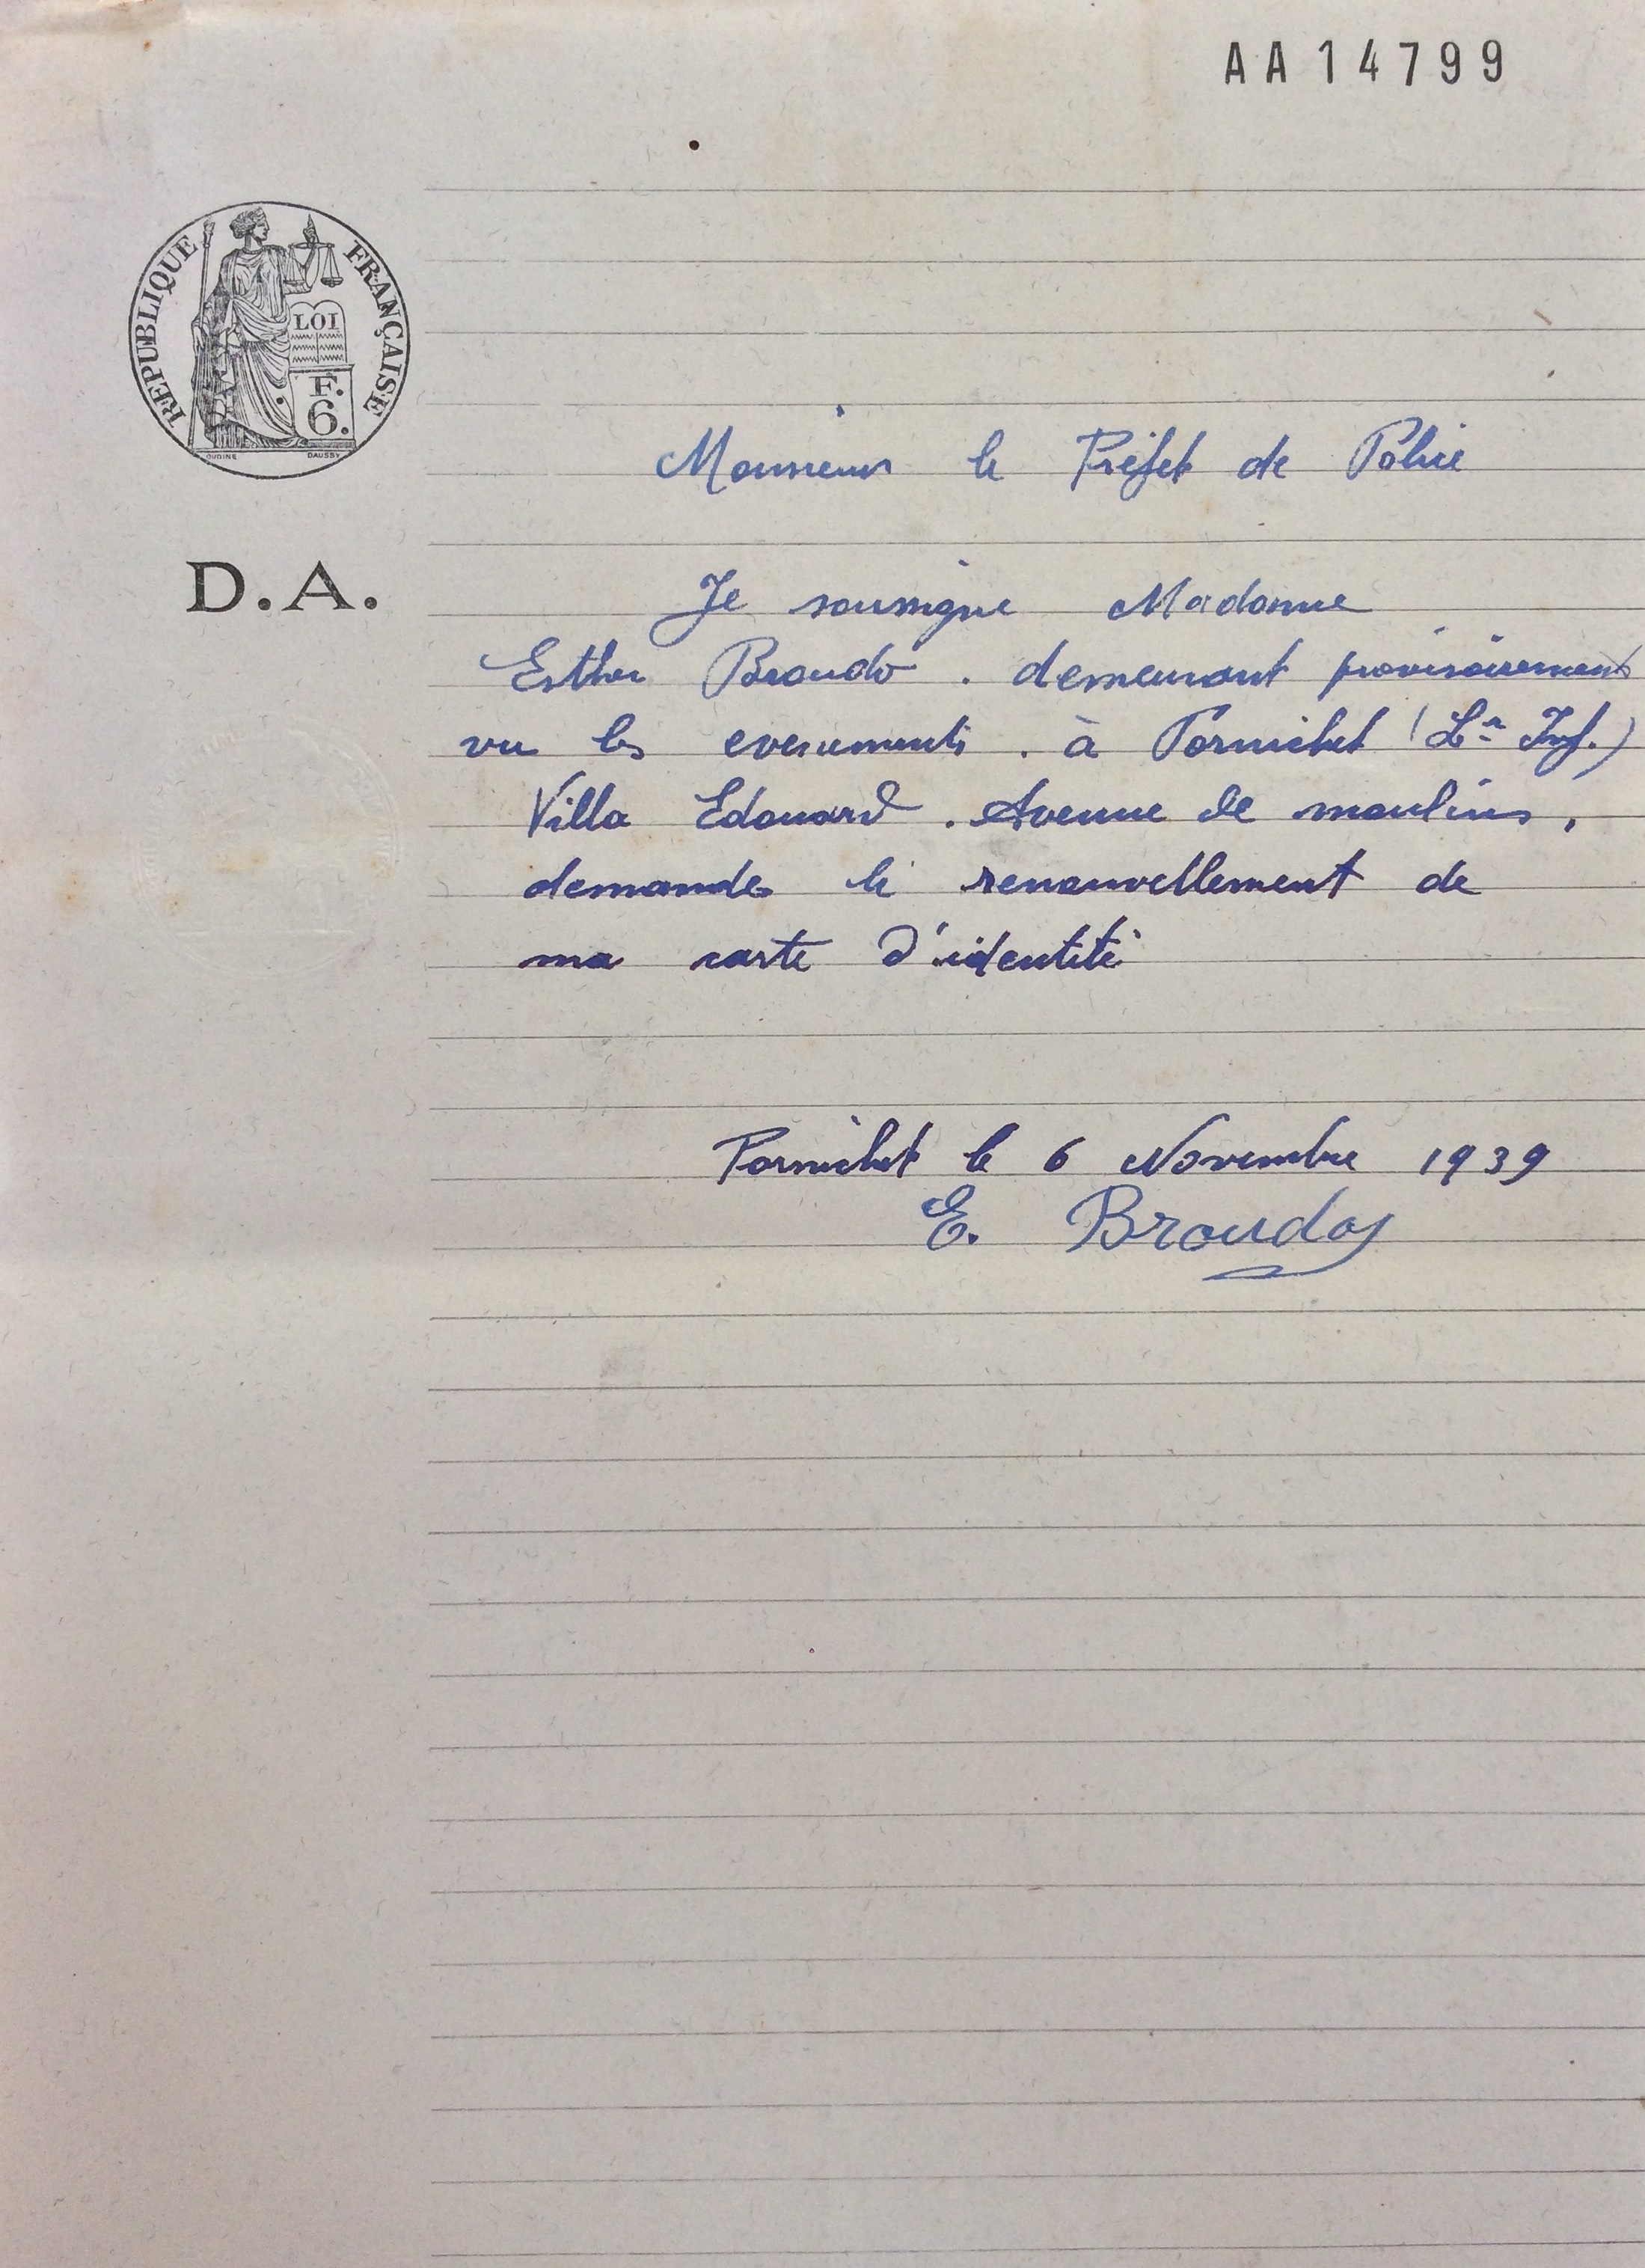 AA14799
REPUBLIQUE FRANÇAISE
LOI
F.
6.
OUDINE DAUSSY
D.A.
Monsieur le Préfet de Police
Je soussigne Madame
Esther Broudo . demeurant provisoirement
vu les evenements . à Pornichet (Lre Inf.)
Villa Edouard . Avenue de moulins,
demande le renouvellement de
ma carte d'identité
Pornichet le 6 Novembre 1939
E. Broudo